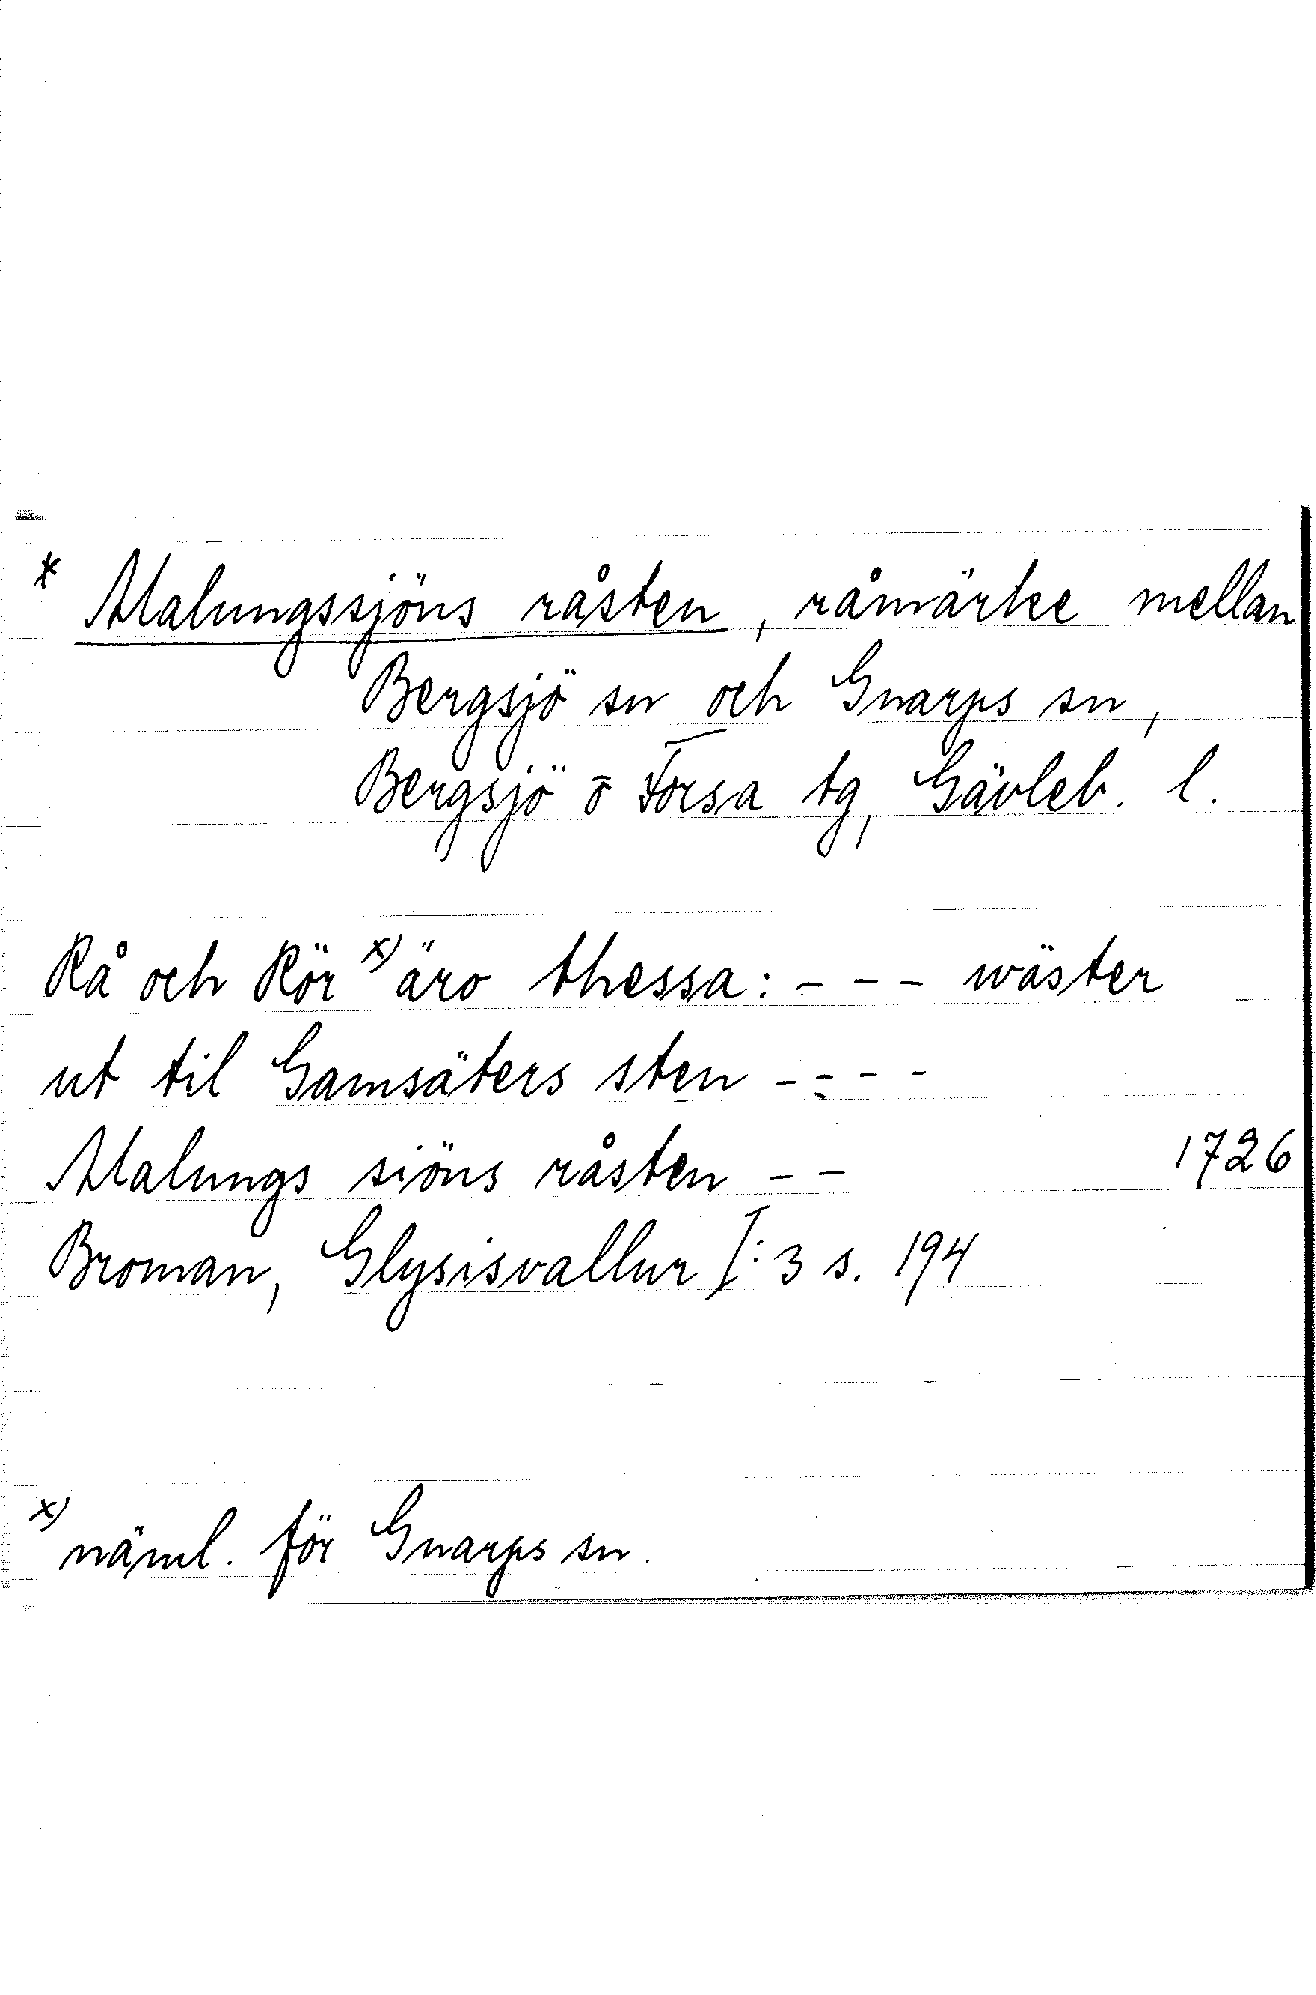 * Malungssjöns råsten, råmärke mellan
Bergsjö sn och Gnarps sn,
Bergsjö o Forsa tg, Gävleb. l.
Rå och Rör x) äro thessa: - - - wäster
ut til Gamsäters sten - - - -
Malungs siöns råsten - - 1726
Broman, Glysisvallur I:3 s. 194
x) näml. för Gnarps sn.